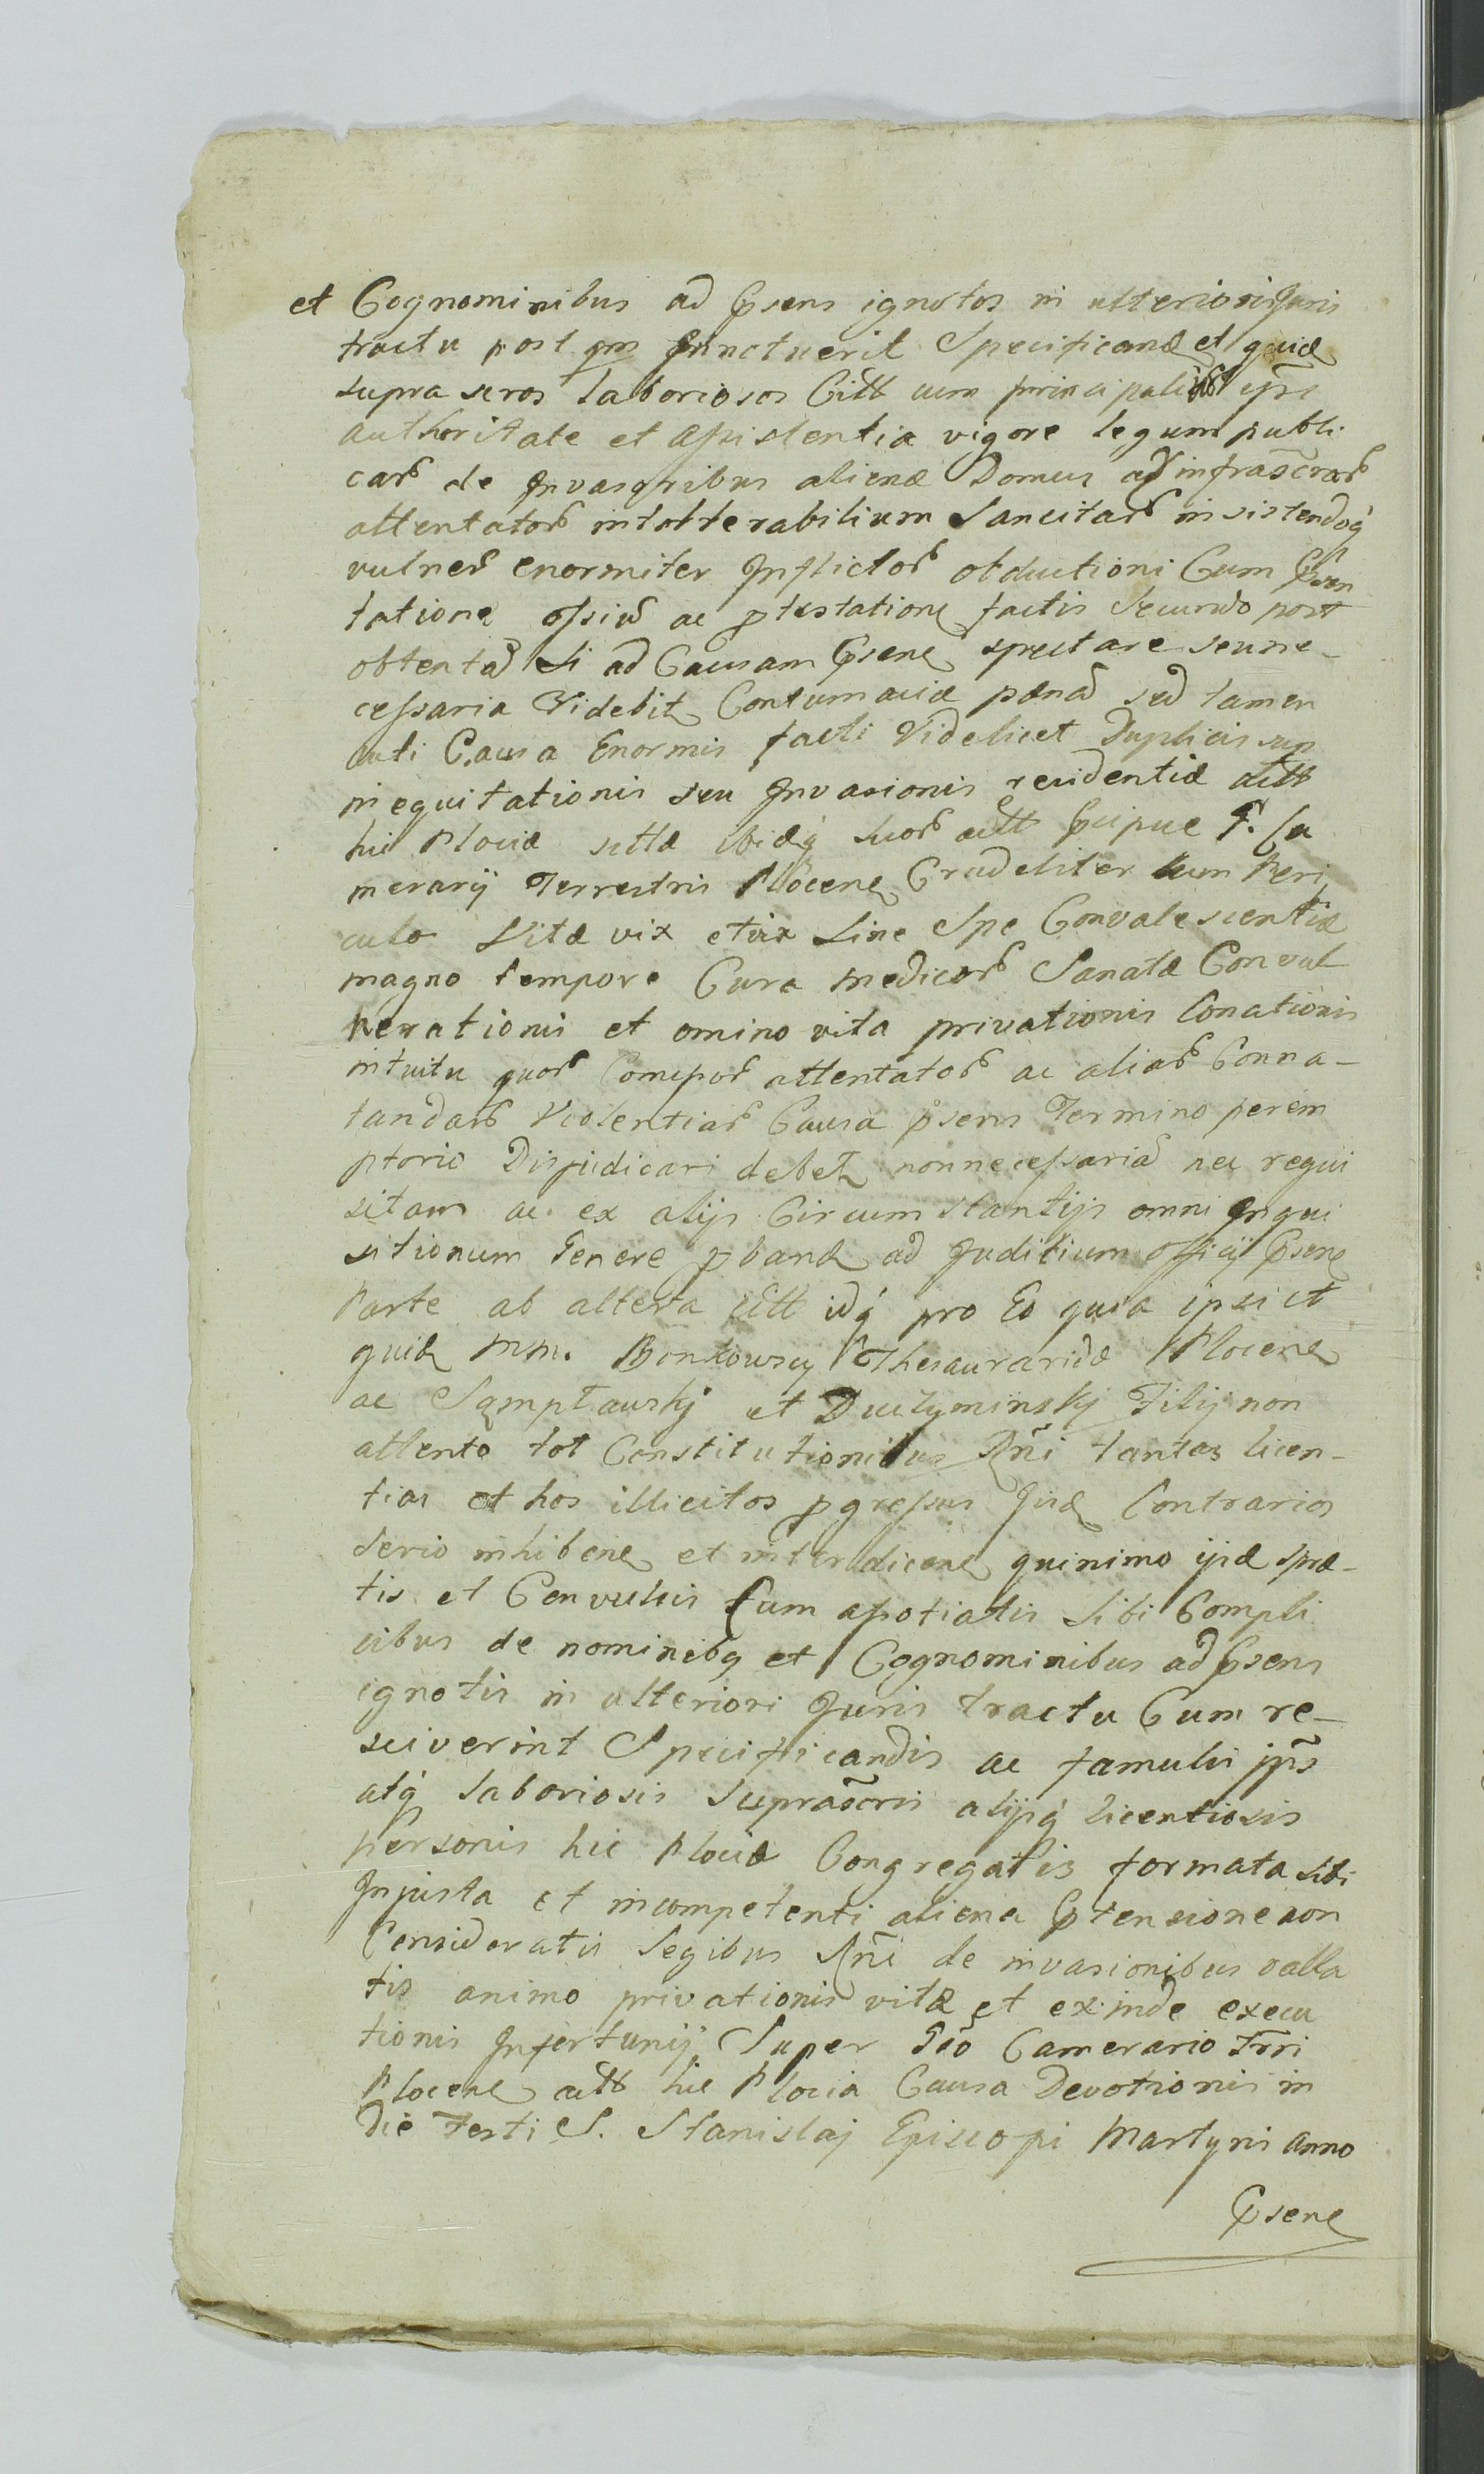 et Cognominibus ad Psens ignotos in ulteriori Juris
tractu post qm Jnnotuerit Specificand et quid
supra scros laboriosos Citt cum principalibus ips
authoritate et assistentia vigore legum publi
car de Jnvasoribus alienæ Domus ad infrascrar
attentator intollerabilium Sancitar insistendoq
vulner enormiter Jnflictor obductioni Cum Psen
tatione ossiu ac ptestatione factis Secundo post
obtentã Si ad Causam Psene spectare seu ne-
cessaria Videbit Contumaciæ pænã sed tamen
uti Causa Enormis facti Videlicet Duplicis
inequitationis seu Jnvasionis residentiæ actt
hic Plociæ sittæ ibidq suor actt Pcipue G. Ca
merarij Terrestris Plocene Crudeliter cum Peri
culo Vitæ vix et vix Sine Spe Convalescentiæ
magno tempore Cura medicor Sanatæ Convul
nerationis et omino vita privationis Conationis
intuitu quor Comper attentator ac aliar Conna-
tandar Violentiar Causa Psens Termino perem
ptorio Disjudicari debet non necessariã nec requi
sitam ac ex alijs Circumstantijs omni Jnqui
sitionum Genere pband ad Juditium officij Psene
Parte ab altera Citt idq pro Eo quia ipsi et
quid MM. Bonkowscy Thesauraridæ Plocene
ac Sampławskj et Duczyminskj Filij non
attento tot Constitutionibus Rñi tantas licen-
tias et hos illicitos pgressus Jnd Contrarios
Serio inhibene et interdicene quinimo ijsd spræ-
tis et Convulsis Cum assotiatis Sibi Compli
cibus de nominibq et Cognominibus ad Psens
ignotis in ulteriori Juris tractu Cum re-
sciverint Specificandis ac famulis jps
atq laboriosis Suprascris alijsq licentiosis
personis hic Plociæ Congregatis formata Sibi
Jnjusta et incompetenti aliena Ptensione non
Consideratis Legibus Rñi de invasionibus valla
tis animo privationis vitæ et exinde execu
tionis Jnfortunij Super Gso Camerario Trri
Plocene actt hic Plocia Causa Devotionis in
Die Festi S. Stanislaj Episcopi Martyris anno
Psene